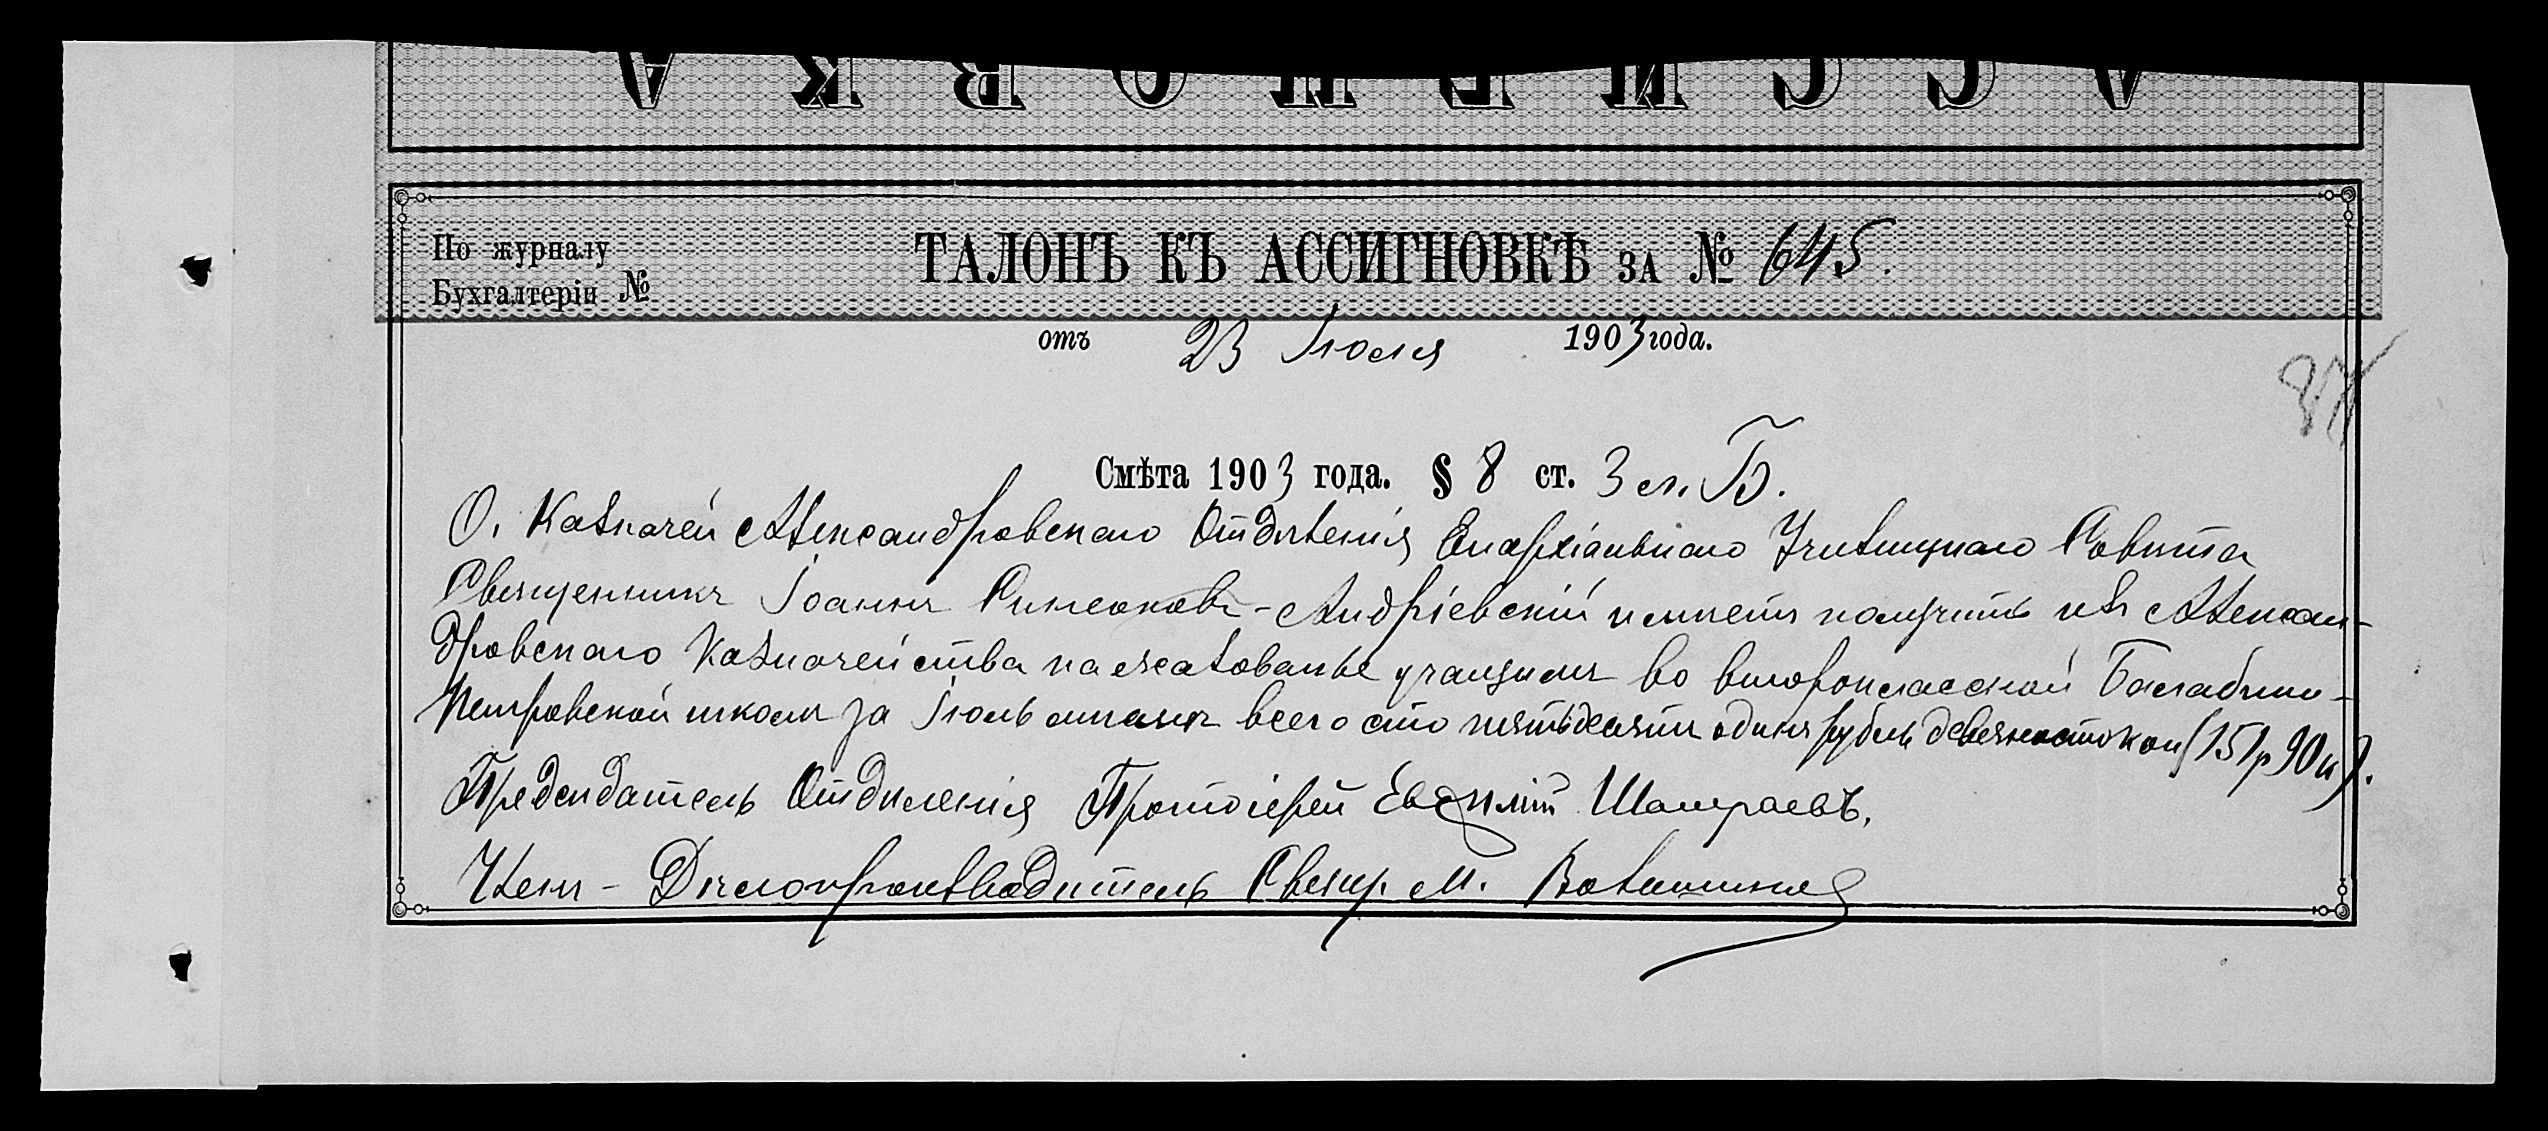 АССИГНОВКА
По журналу
Бухгалтеріи №
ТАЛОНЪ КЪ АССИГНОВКѢ ЗА № 645.
отъ 23 Іюля 1903 года.
87
Смѣта 1903 года. § 8 ст. 3 л. Б.
О. Казначей Александровскаго Отдѣленія Епархіальнаго Училищнаго Совѣта
Священникъ Іоаннъ Синеоковъ-Андріевскій имѣетъ получить изъ Алексан-
дровскаго Казначейства на жалованье учащимъ во второклассной Балабино-
Петровской школѣ за Іюль всего сто пятьдесятъ одинъ рубль девяносто коп (151 р 90 к).
Предсѣдатель Отдѣленія Протоіерей Евфимій
Членъ - Дѣлопроизводитель Свящ. М.